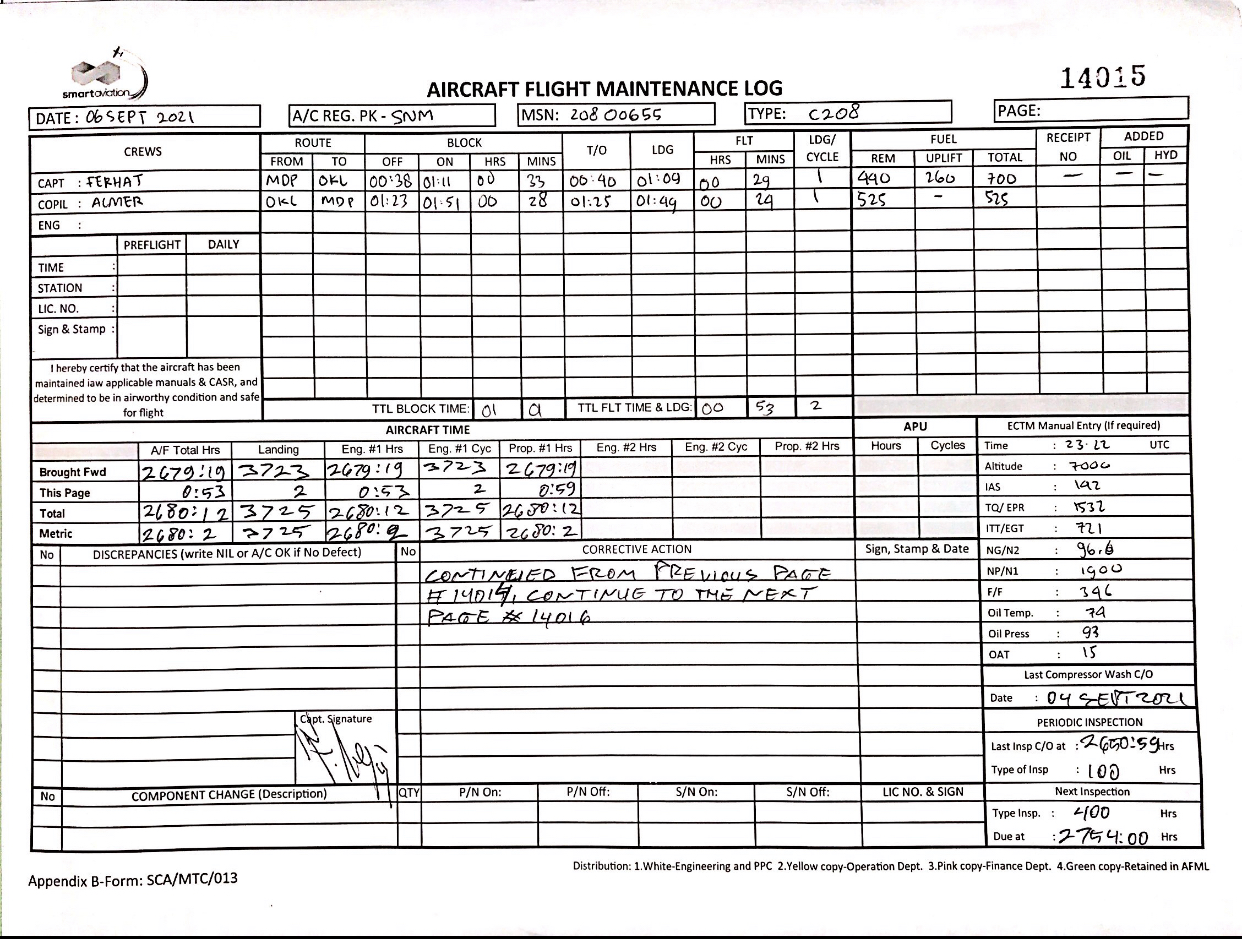 smartaviation
14015
AIRCRAFT FLIGHT MAINTENANCE LOG
DATE : 06 SEPT 2021 A/C REG. PK - SNM MSN: 208 00655 TYPE: C208 PAGE:
CREWS ROUTE BLOCK T/O LDG FLT LDG/ CYCLE FUEL RECEIPT NO ADDED
FROM TO OFF ON HRS MINS HRS MINS REM UPLIFT TOTAL OIL HYD
CAPT : FERHAT MDP OKL 00:38 01:11 00 33 00:40 01:09 00 29 1 440 260 700 — — —
COPIL : ALMER OKL MDP 01:23 01:51 00 28 01:25 01:49 00 24 1 525 - 525
ENG :
PREFLIGHT DAILY
TIME :
STATION :
LIC. NO. :
Sign & Stamp :
I hereby certify that the aircraft has been
maintained iaw applicable manuals & CASR, and
determined to be in airworthy condition and safe
for flight
TTL BLOCK TIME: 01 01 TTL FLT TIME & LDG: 00 53 2
AIRCRAFT TIME APU ECTM Manual Entry (If required)
A/F Total Hrs Landing Eng. #1 Hrs Eng. #1 Cyc Prop. #1 Hrs Eng. #2 Hrs Eng. #2 Cyc Prop. #2 Hrs Hours Cycles
Brought Fwd 2679:19 3723 2679:19 3723 2679:19
This Page 0:53 2 0:53 2 0:59
Total 2680:12 3725 2680:12 3725 2680:12
Metric 2680:2 3725 2680:2 3725 2680:2
Time : 23:22 UTC
Altitude : 7000
IAS : 142
TQ/ EPR : 1532
ITT/EGT : 721
NG/N2 : 96.6
NP/N1 : 1900
F/F : 346
Oil Temp. : 74
Oil Press : 93
OAT : 15
Last Compressor Wash C/O
Date : 04 SEPT 2021
PERIODIC INSPECTION
Last Insp C/O at : 2650:59 Hrs
Type of Insp : 100 Hrs
Next Inspection
Type Insp. : 400 Hrs
Due at : 2754:00 Hrs
No DISCREPANCIES (write NIL or A/C OK if No Defect) No CORRECTIVE ACTION Sign, Stamp & Date
CONTINUED FROM PREVIOUS PAGE
# 14014, CONTINUE TO THE NEXT
PAGE # 14016
Capt. Signature
No COMPONENT CHANGE (Description) QTY P/N On: P/N Off: S/N On: S/N Off: LIC NO. & SIGN
Distribution: 1.White-Engineering and PPC 2.Yellow copy-Operation Dept. 3.Pink copy-Finance Dept. 4.Green copy-Retained in AFML
Appendix B-Form: SCA/MTC/013